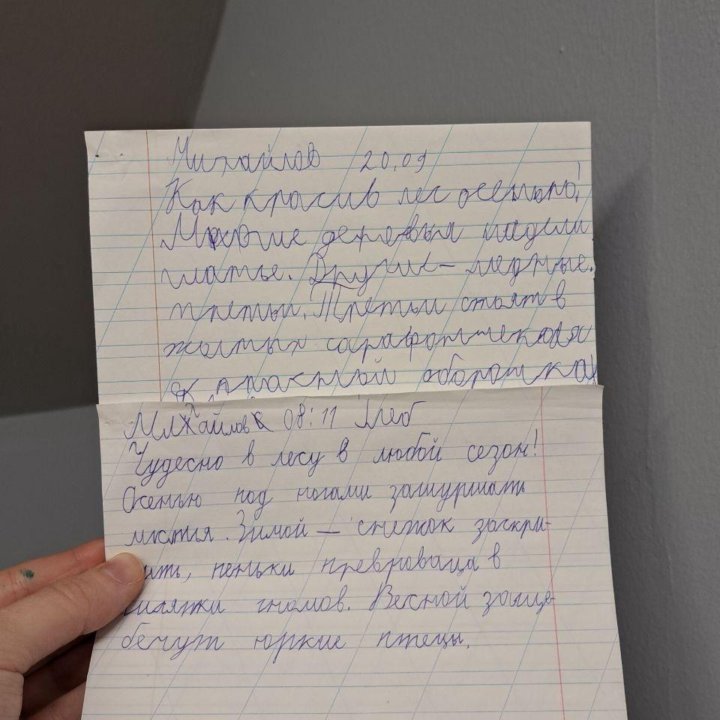 Михайлов 20.09
Как красив лес осенью!
Многие деревья надели
платье. Другие – медные.
Третьи стоят в
жолтых
красной оборочка
Михайлов 08:11 Глеб
Чудесно в лесу в любой сезон!
Осенью под ногами зашуршать
листья. Зимой – снежок заскри-
пеньки превроваца в
гномов. Весной заще-
бечут юркие птецы.